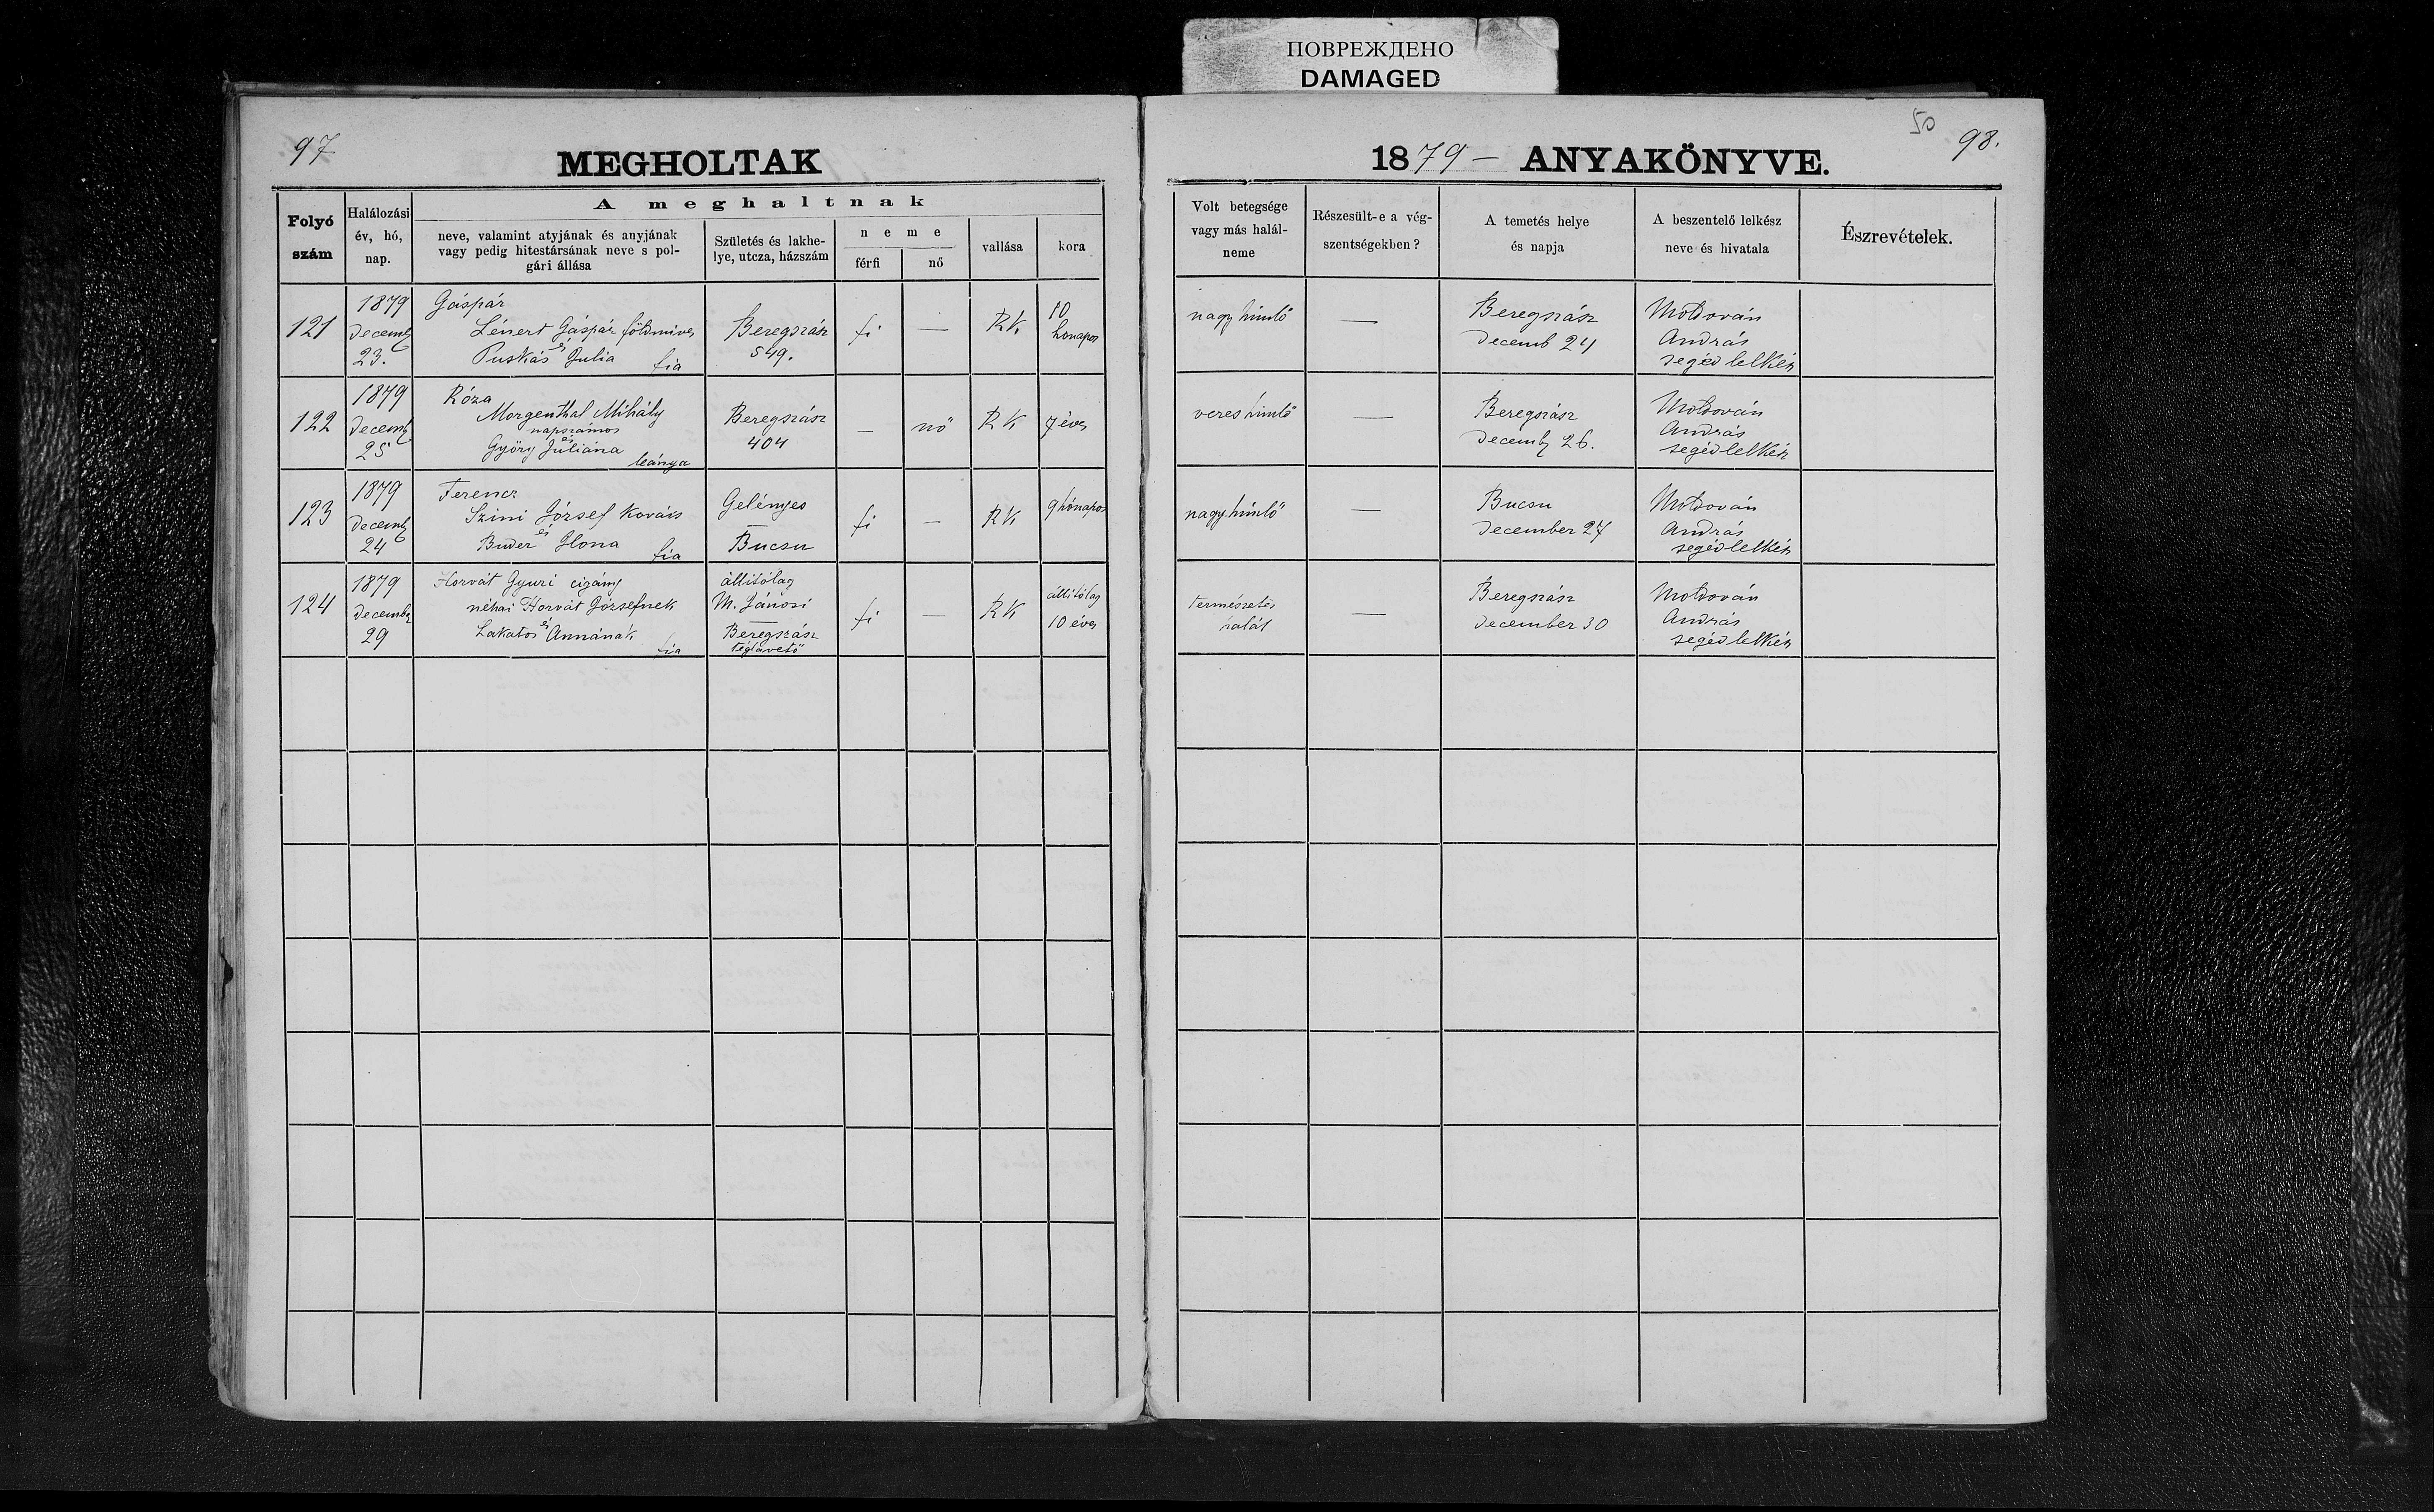 ПОВРЕЖДЕНО
DAMAGED
97
MEGHOLTAK
Folyó
szám
Halálozási
év, hó,
nap.
A meghaltnak
neve, valamint atyjának és anyjának
vagy pedig hitestársának neve s pol-
gári állása
Születés és lakhe-
lye, utcza, házszám
neme
férfi
nő
vallása
kora
121
1879
Decemb
23.
Gáspár
Lénert Gáspár földmives
és
Puskás Julia fia
Beregszász
549.
fi
—
RK
10
hónapos
122
1879
Decemb
25
Róza
Morgenthal Mihály
napszámos
és
György Juliána
leánya
Beregszász
404
—
nő
RK
7 éves
123
1879
Decemb
24
Ferencz
Szini József Kovács
és
Buder Ilona fia
Gelényes
—
Bucsu
fi
—
RK
9 hónapos
124
1879
December
29
Horvát Gyuri cigány
néhai Horvát Józsefnek
és
Lakatos Annának
fia
állitólag
M. Jánosi
—
Beregszász
téglavető
fi
—
RK
állitólag
10 éves
50
98.
1879 — ANYAKÖNYVE.
Volt betegsége
vagy más halál-
neme
Részesült-e a vég-
szentségekben?
A temetés helye
és napja
A beszentelő lelkész
neve és hivatala
Észrevételek.
nagy himlő
—
Beregszász
Decemb 24
Moldován
András
segéd lelkész
veres himlő
—
Beregszász
Decemb 26.
Moldován
András
segédlelkész
nagy himlő
—
Bucsu
December 27
Moldován
András
segédlelkész
természetes
halál
—
Beregszász
December 30
Moldován
András
segédlelkész